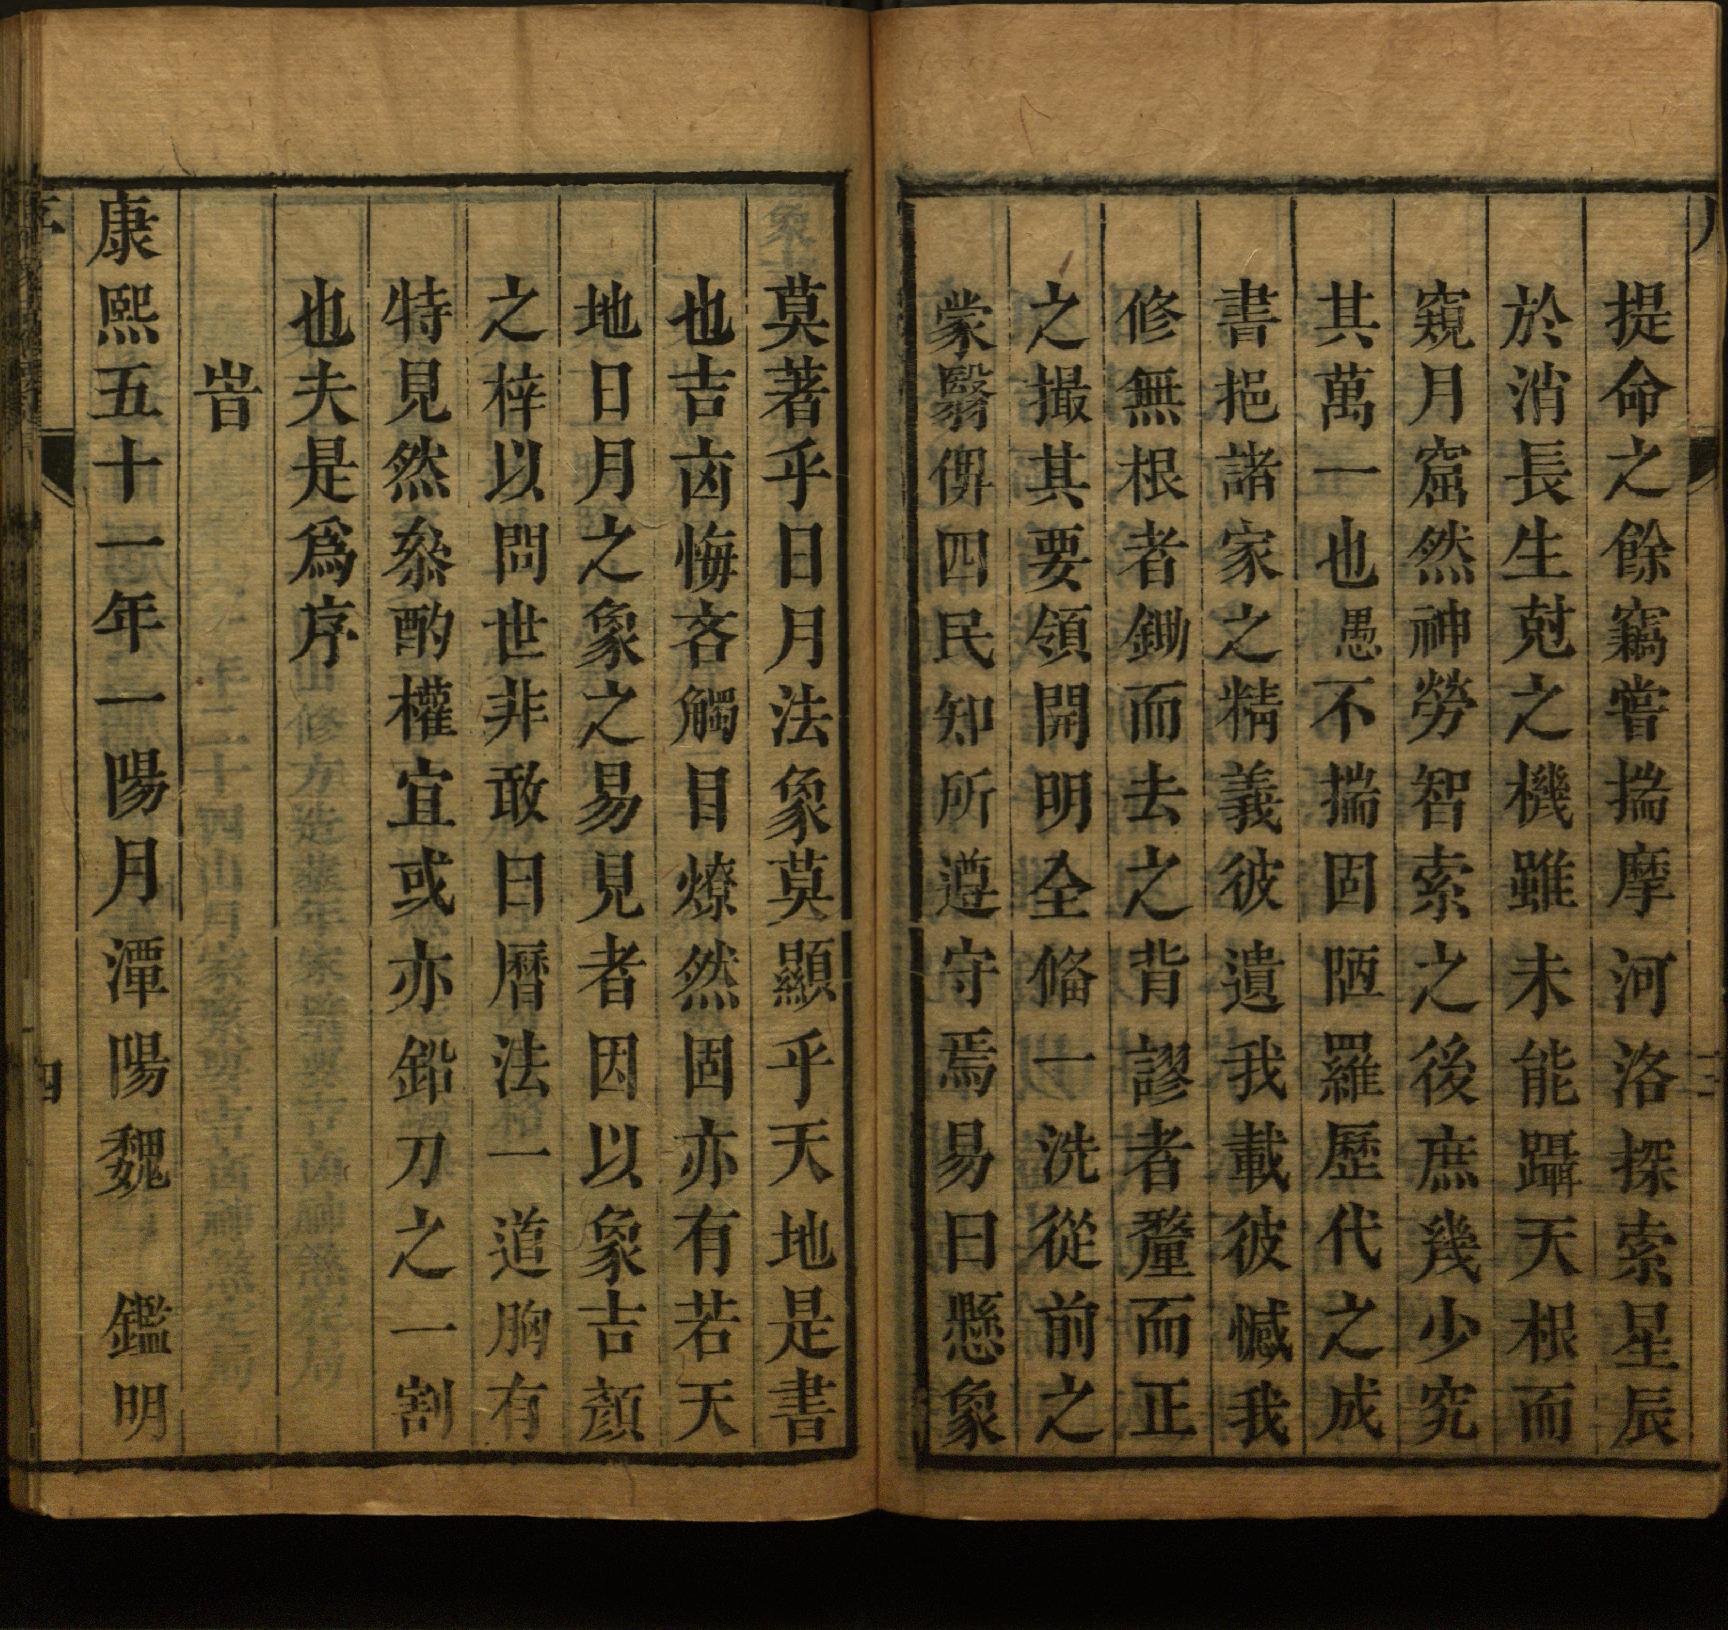 提命之餘竊嘗揣摩河洛探索星辰
於消長生尅之機雖未能躡天根而
窺月窟然神勞智索之後庶幾少究
其萬一也愚不揣固陋羅歷代之成
書挹諸家之精義彼遺我載彼憾我
修無根者鋤而去之背謬者釐而正
之撮其要領開明全俻一洗從前之
蒙翳俾四民知所遵守焉易曰懸象
莫著乎日月法象莫顯乎天地是書
也吉凶悔吝觸目燎然固亦有若天
地日月之象之易見者因以象吉顏
之梓以問世非敢曰曆法一道胸有
特見然叅酌權宜或亦鉛刀之一割
也夫是爲序
旹
康熙五十一年一陽月潭陽魏 鑑明
四